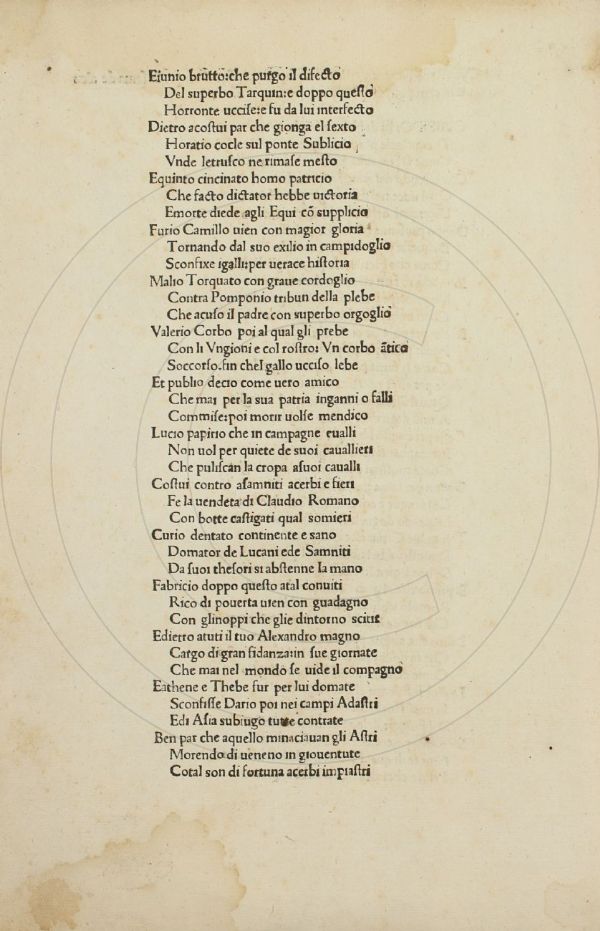 Eiunio brutto:che purgo il difecto
Del superbo Tarquin:e doppo questo
Horronte uccise:e fu da lui interfecto
Dietro acostui par che gionga el sexto
Horatio cocle sul ponte Sublicio
Vnde letrusco ne rimase mesto
Equinto cincinato homo patricio
Che facto dictator hebbe uictoria
Emorte diede agli Equi cō supplicio
Furio Camillo uien con magior gloria
Tornando dal suo exilio in campidoglio
Sconfixe igalli:per uerace historia
Malio Torquato con graue cordoglio
Contra Pomponio tribun della plebe
Che acuso il padre con superbo orgoglio
Valerio Corbo poi al qual gli prebe
Con li Vngioni e col rostro: Vn corbo ātico
Soccorso.fin chel gallo ucciso lebe
Et publio decio come uero amico
Che mai per la sua patria inganni o falli
Commise:poi morir uolse mendico
Lucio papirio che in campagne eualli
Non uol per quiete de suoi cauallieri
Che puliscan la cropa asuoi caualli
Costui contro asamniti acerbi e fieri
Fe la uendeta di Claudio Romano
Con botte castigati qual somieri
Curio dentato continente e sano
Domator de Lucani ede Samniti
Da suoi thesori si abstenne la mano
Fabricio doppo questo atal conuiti
Rico di pouerta uien con guadagno
Con glinoppi che glie dintorno
Edietro atuti il tuo Alexandro magno
Cargo di gran fidanza:in sue giornate
Che mai nel mondo se uide il compagno
Eathene e Thebe fur per lui domate
Sconfisse Dario poi nei campi Adastri
Edi Asia subiugo tutte contrate
Ben par che aquello minaciauan gli Astri
Morendo di ueneno in giouentute
Cotal son di fortuna acerbi impiastri